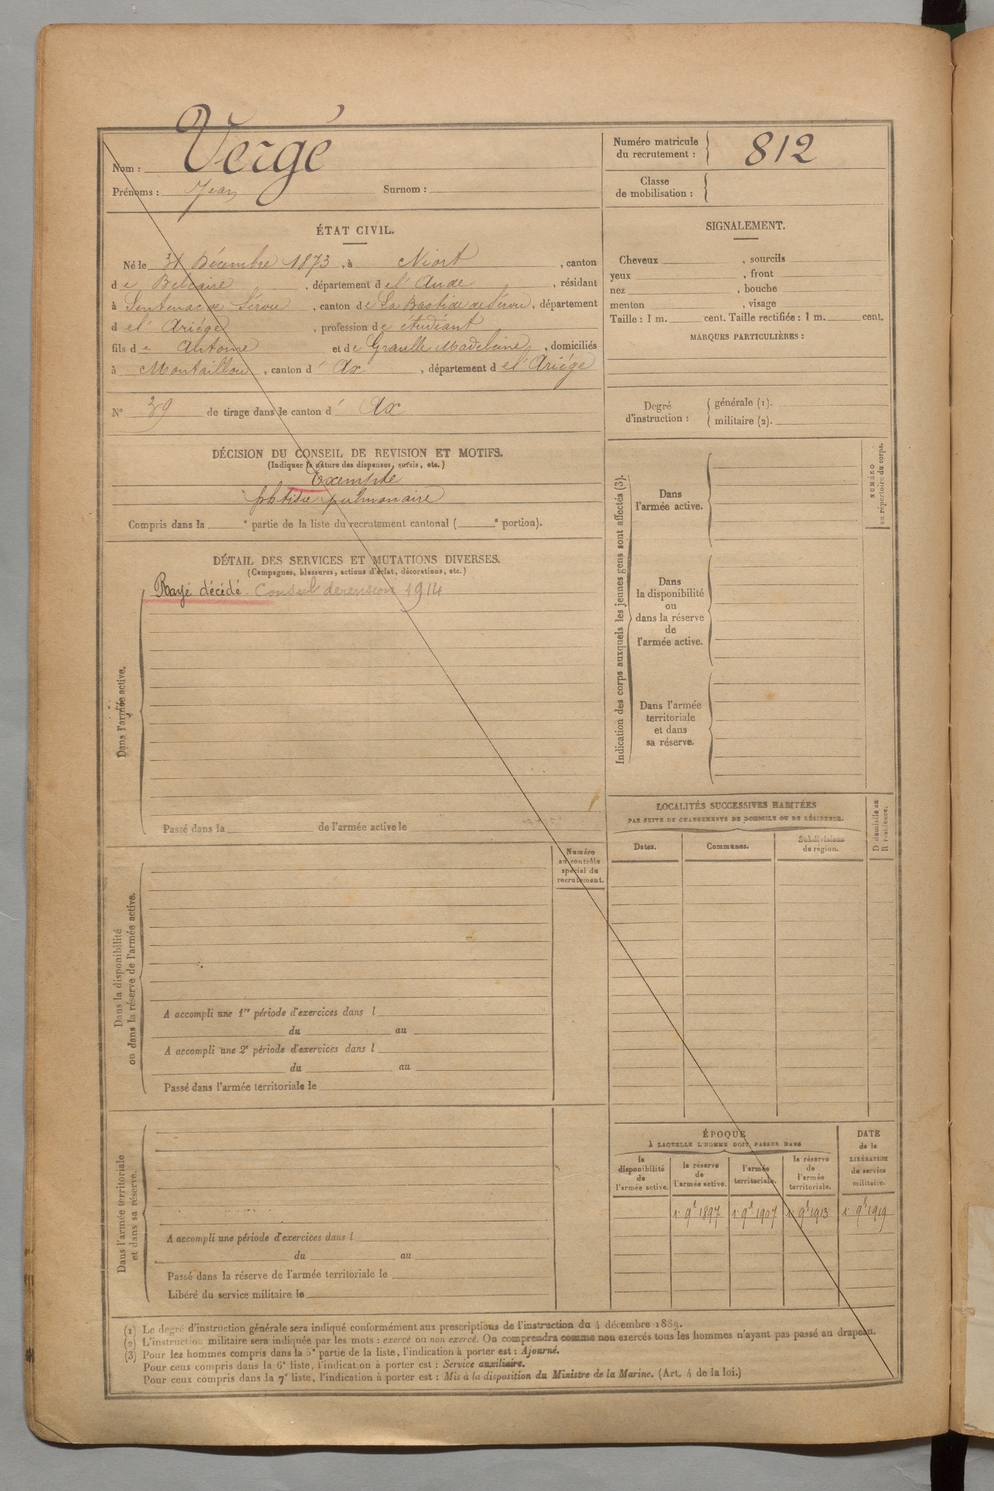 Nom : Vergé
Prénoms : Jean Surnom :
Numéro matricule du recrutement : 812
Classe de mobilisation :
ÉTAT CIVIL.
Né le 31 Décembre 1873, à Niort, canton
de Belcaire, département de l'Aude, résidant
à Sentenac de Sérou, canton de La Bastide de Sérou, département
de l'Ariège, profession de étudiant
fils de Antoine et de Graulle Madeleine, domiciliés
à Montaillou, canton d' Ax, département de l'Ariége
N° 39 de tirage dans le canton d' Ax
DÉCISION DU CONSEIL DE REVISION ET MOTIFS.
(Indiquer la nature des dispenses, sursis, etc.)
Exempté
phtisie pulmonaire
Compris dans la e partie de la liste du recrutement cantonal ( e portion).
DÉTAIL DES SERVICES ET MUTATIONS DIVERSES.
(Campagnes, blessures, actions d'éclat, décorations, etc.)
Dans l'armée active.
Rayé décédé. Conseil de révision 1914
Passé dans la de l'armée active le
Numéro au contrôle spécial du recrutement.
Dans la disponibilité
ou dans la réserve de l'armée active.
A accompli une 1re période d'exercices dans l
du au
A accompli une 2e période d'exercices dans l
du au
Passé dans l'armée territoriale le
Dans l'armée territoriale
et dans sa réserve.
A accompli une période d'exercices dans l
du au
Passé dans la réserve de l'armée territoriale le
Libéré du service militaire le
SIGNALEMENT.
Cheveux , sourcils
yeux , front
nez , bouche
menton , visage
Taille : 1 m. cent. Taille rectifiée : 1 m. cent.
MARQUES PARTICULIÈRES :
Degré d'instruction : générale (1).
militaire (2).
Indication des corps auxquels les jeunes gens sont affectés (3).
NUMÉRO
au répertoire du corps.
Dans
l'armée active.
Dans
la disponibilité
ou
dans la réserve
de
l'armée active.
Dans l'armée
territoriale
et dans
sa réserve.
LOCALITÉS SUCCESSIVES HABITÉES
PAR SUITE DE CHANGEMENTS DE DOMICILE OU DE RÉSIDENCE.
Dates. Communes. Subdivisions de région.
D domicile ou
R résidence.
ÉPOQUE
À LAQUELLE L'HOMME DOIT PASSER DANS
DATE de la LIBÉRATION du service militaire.
la disponibilité de l'armée active. la réserve de l'armée active. l'armée territoriale. la réserve de l'armée territoriale.
1er 9bre 1897 1er 9bre 1907 1er 9bre 1913 1er 9bre 1919
(1) Le degré d'instruction générale sera indiqué conformément aux prescriptions de l'instruction du 4 décembre 1889.
(2) L'instruction militaire sera indiquée par les mots : exercé ou non exercé. On comprendra comme non exercés tous les hommes n'ayant pas passé au drapeau.
(3) Pour les hommes compris dans la 5e partie de la liste, l'indication à porter est : Ajourné.
Pour ceux compris dans la 6e liste, l'indication à porter est : Service auxiliaire.
Pour ceux compris dans la 7e liste, l'indication à porter est : Mis à la disposition du Ministre de la Marine. (Art. 4 de la loi.)